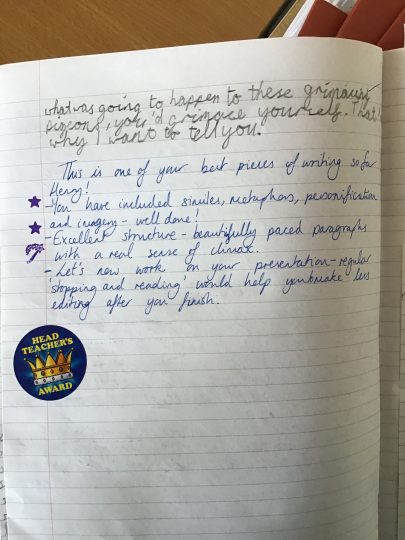 what was going to happen to these grimacing
pigeons, you'd grimace yourself. That's
why I want to tell you.
This is one of your best pieces of writing so far
Henry!
- You have included similes, metaphors, personification
and imagery - well done!
- Excellent structure - beautifully paced paragraphs
with a real sense of climax.
- Let's now work on your presentation - regular
'stopping and reading' would help you make less
editing after you finish.
HEAD
TEACHER'S
AWARD